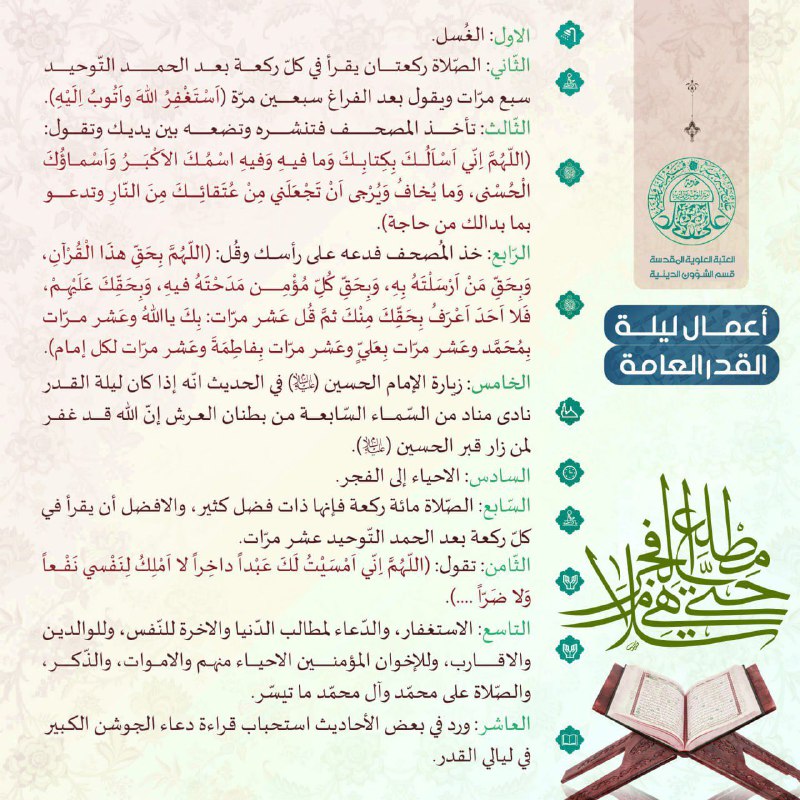 الاول: الغُسل.
الثّاني: الصّلاة ركعتــان يقــرأ في كلّ ركعــة بعــد الحمــد التّوحيــد
سبع مرّات ويقول بعد الفراغ سبعــين مرّة (اَسْتَغْفِرُ اللهَ واَتُوبُ اِلَيْهِ).
الثّالث: تأخــذ المصحــف فتنشــره وتضعــه بين يديــك وتقــول:
(اللّهُمَّ اِنّي اَسْأَلُــكَ بِكِتابِــكَ وَما فيــهِ وَفيــهِ اسْمُــكَ الاَكْبَــرُ وَاَسْمــاؤُكَ
الْحُسْنى، وَما يُخافُ وَيُرْجى اَنْ تَجْعَلَني مِنْ عُتَقائِــكَ مِنَ النّارِ وتدعــو
بما بدالك من حاجة).
الرّابع: خذ المُصحف فدعه على رأســك وقُل: (اللّهُمَّ بِحَقِّ هذَا الْقُرْآنِ،
وَبِحَقِّ مَنْ اَرْسَلْتَهُ بِهِ، وَبِحَقِّ كُلِّ مُؤْمِــن مَدَحْتَهُ فيهِ، وَبِحَقِّكَ عَلَيْهِــمْ،
فَلا اَحَدَ اَعْرَفُ بِحَقِّكَ مِنْكَ ثمَّ قُل عَشر مرّات: بِكَ يااللهُ وعَشر مــرّات
بِمُحَمَّد وعَشر مرّات بِعَليٍّ وعَشر مرّات بِفاطِمَةَ وعَشر مرّات لكل إمام).
الخامس: زيارة الإمام الحسين (عليه السلام) في الحديث انّه إذا كان ليلة القــدر
نادى مناد من السّمــاء السّابعــة من بطنان العرش إنّ الله قــد غفــر
لمن زار قبر الحسين (عليه السلام).
السادس: الاحياء إلى الفجر.
السّابع: الصّلاة مائة ركعة فإنها ذات فضل كثير، والافضل أن يقرأ في
كلّ ركعة بعد الحمد التّوحيد عشر مرّات.
الثّامن: تقول: (اللّهُمَّ اِنّي اَمْسَيْتُ لَكَ عَبْداً داخِراً لا اَمْلِكُ لِنَفْسي نَفْــعاً
وَلا ضَرّاً ....).
التاسع: الاستغفار، والدّعاء لمطالب الدّنيا والاخرة للنّفس، وللوالدين
والاقــارب، وللإخوان المؤمنــين الاحياء منهــم والاموات، والذّكــر،
والصّلاة على محمّد وآل محمّد ما تيسّر.
العاشر: ورد في بعض الأحاديث استحباب قراءة دعاء الجوشن الكبير
في ليالي القدر.
العتبة العلوية المقدسة
قسم الشؤون الدينية
أعمــال ليلــة
القدر العامة
سلام هي حتى مطلع الفجر